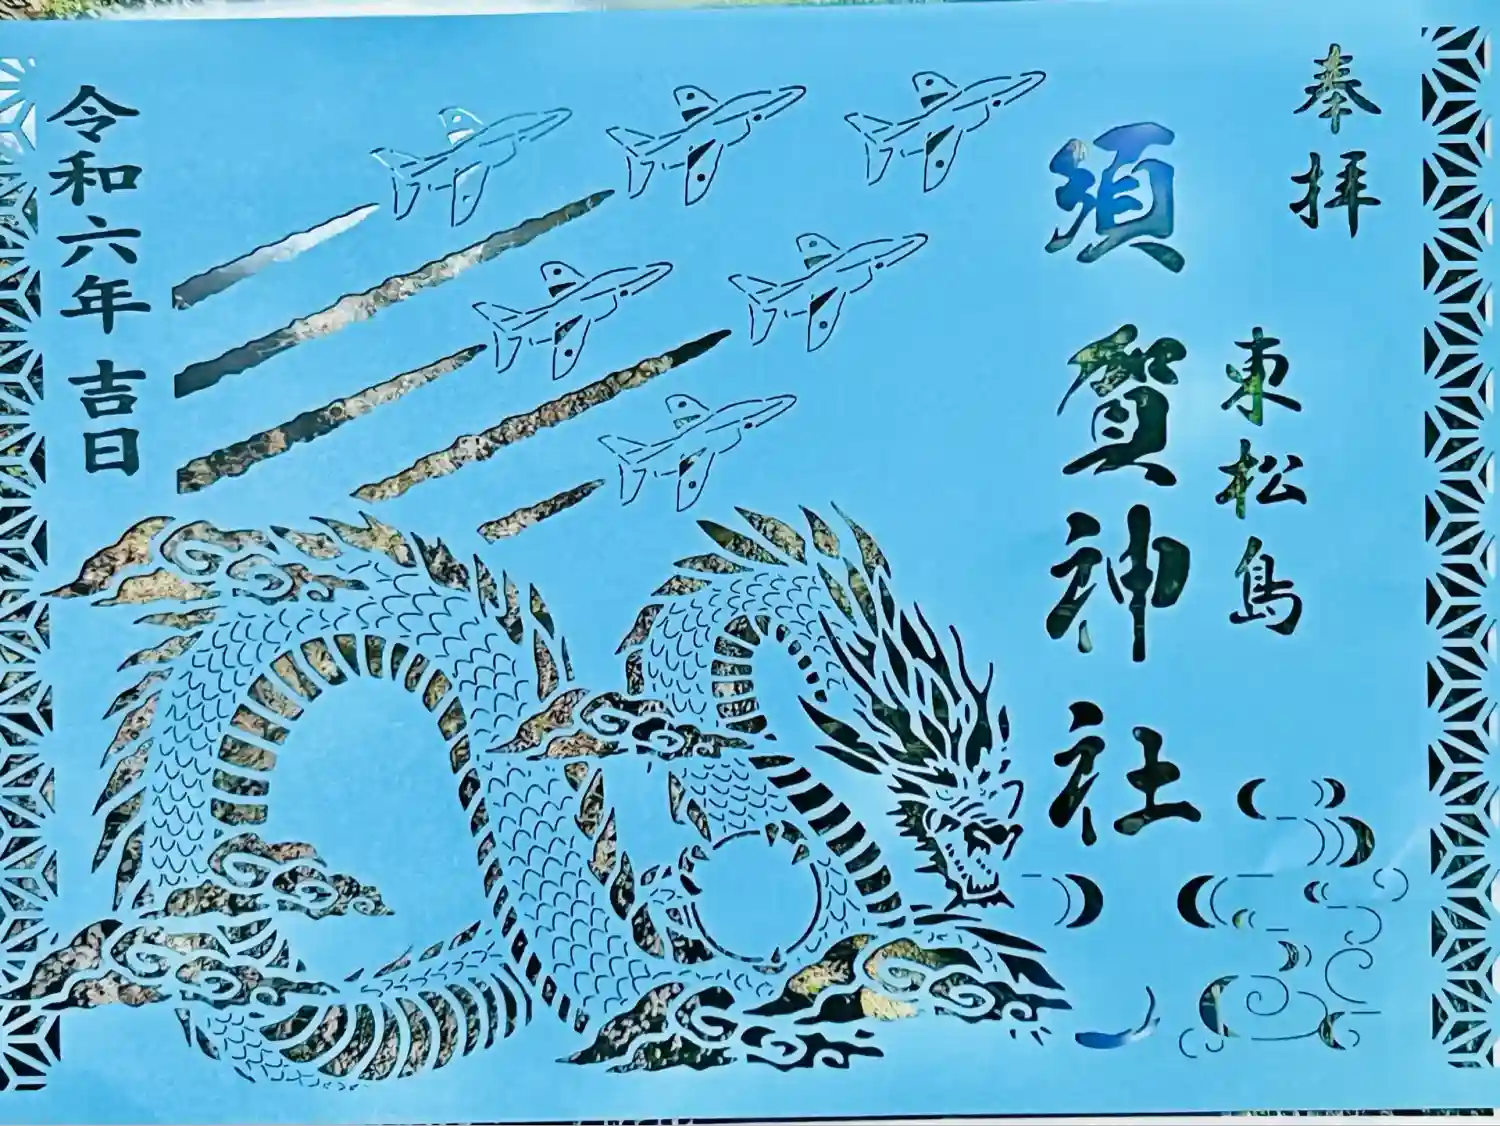 奉拝
東松島
須賀神社
令和六年吉日